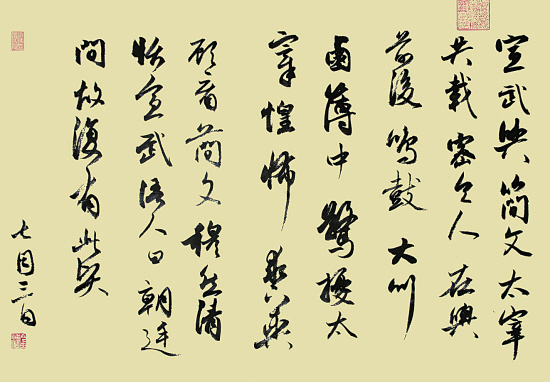 宣武與簡文太宰
共載密令人在輿
前後鳴鼓大叫
鹵薄中驚擾太
宰惶怖求下輿
顧看簡文穆然清
恬宣武語人曰朝廷
間故復有此賢
七月三日